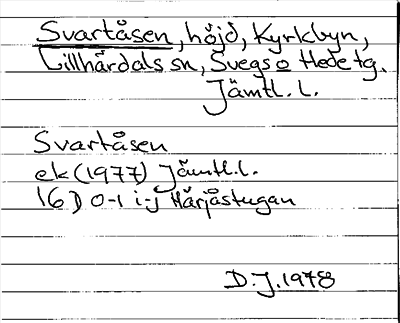 Svartåsen, höjd, Kyrkbyn,
Lillhärdals sn, Svegs o Hede tg.
Jämtl. l.
Svartåsen
ek (1977) Jämtl. l.
16D 0-1 i-j Härjåstugan
D.J. 1978